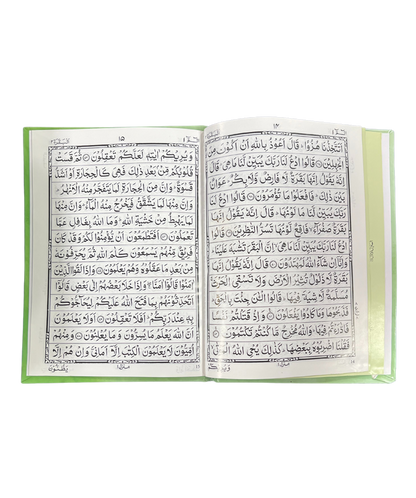 ١٤
اَتَتَّخِذُنَا هُزُوًا ؕ قَالَ اَعُوْذُ بِاللّٰهِ اَنْ اَكُوْنَ مِنَ
الْجٰهِلِيْنَ ۝ قَالُوا ادْعُ لَنَا رَبَّكَ يُبَيِّنْ لَّنَا مَا هِيَ ؕ قَالَ
اِنَّهٗ يَقُوْلُ اِنَّهَا بَقَرَةٌ لَّا فَارِضٌ وَّلَا بِكْرٌ ؕ عَوَانٌۢ
بَيْنَ ذٰلِكَ ؕ فَافْعَلُوْا مَا تُؤْمَرُوْنَ ۝ قَالُوا ادْعُ لَنَا
رَبَّكَ يُبَيِّنْ لَّنَا مَا لَوْنُهَا ؕ قَالَ اِنَّهٗ يَقُوْلُ اِنَّهَا
بَقَرَةٌ صَفْرَآءُ ۙ فَاقِعٌ لَّوْنُهَا تَسُرُّ النّٰظِرِيْنَ ۝ قَالُوا
ادْعُ لَنَا رَبَّكَ يُبَيِّنْ لَّنَا مَا هِيَ ۙ اِنَّ الْبَقَرَ تَشٰبَهَ عَلَيْنَا ؕ
وَاِنَّآ اِنْ شَآءَ اللّٰهُ لَمُهْتَدُوْنَ ۝ قَالَ اِنَّهٗ يَقُوْلُ اِنَّهَا
بَقَرَةٌ لَّا ذَلُوْلٌ تُثِيْرُ الْاَرْضَ وَلَا تَسْقِي الْحَرْثَ ۚ
مُسَلَّمَةٌ لَّا شِيَةَ فِيْهَا ؕ قَالُوا الْـٰٔنَ جِئْتَ بِالْحَقِّ ؕ
فَذَبَحُوْهَا وَمَا كَادُوْا يَفْعَلُوْنَ ۝ وَاِذْ قَتَلْتُمْ نَفْسًا
فَادّٰرَءْتُمْ فِيْهَا ؕ وَاللّٰهُ مُخْرِجٌ مَّا كُنْتُمْ تَكْتُمُوْنَ ۝
فَقُلْنَا اضْرِبُوْهُ بِبَعْضِهَا ؕ كَذٰلِكَ يُحْيِ اللّٰهُ الْمَوْتٰى ۙ
١٥
وَيُرِيْكُمْ اٰيٰتِهٖ لَعَلَّكُمْ تَعْقِلُوْنَ ۝ ثُمَّ قَسَتْ
قُلُوْبُكُمْ مِّنْۢ بَعْدِ ذٰلِكَ فَهِيَ كَالْحِجَارَةِ اَوْ اَشَدُّ
قَسْوَةً ؕ وَاِنَّ مِنَ الْحِجَارَةِ لَمَا يَتَفَجَّرُ مِنْهُ الْاَنْهٰرُ ؕ
وَاِنَّ مِنْهَا لَمَا يَشَّقَّقُ فَيَخْرُجُ مِنْهُ الْمَآءُ ؕ وَاِنَّ مِنْهَا
لَمَا يَهْبِطُ مِنْ خَشْيَةِ اللّٰهِ ؕ وَمَا اللّٰهُ بِغَافِلٍ عَمَّا
تَعْمَلُوْنَ ۝ اَفَتَطْمَعُوْنَ اَنْ يُّؤْمِنُوْا لَكُمْ وَقَدْ كَانَ
فَرِيْقٌ مِّنْهُمْ يَسْمَعُوْنَ كَلٰمَ اللّٰهِ ثُمَّ يُحَرِّفُوْنَهٗ
مِنْۢ بَعْدِ مَا عَقَلُوْهُ وَهُمْ يَعْلَمُوْنَ ۝ وَاِذَا لَقُوا الَّذِيْنَ
اٰمَنُوْا قَالُوْٓا اٰمَنَّا ۖۚ وَاِذَا خَلَا بَعْضُهُمْ اِلٰى بَعْضٍ قَالُوْٓا
اَتُحَدِّثُوْنَهُمْ بِمَا فَتَحَ اللّٰهُ عَلَيْكُمْ لِيُحَآجُّوْكُمْ
بِهٖ عِنْدَ رَبِّكُمْ ؕ اَفَلَا تَعْقِلُوْنَ ۝ اَوَلَا يَعْلَمُوْنَ
اَنَّ اللّٰهَ يَعْلَمُ مَا يُسِرُّوْنَ وَمَا يُعْلِنُوْنَ ۝ وَمِنْهُمْ
اُمِّيُّوْنَ لَا يَعْلَمُوْنَ الْكِتٰبَ اِلَّآ اَمَانِيَّ وَاِنْ هُمْ اِلَّا